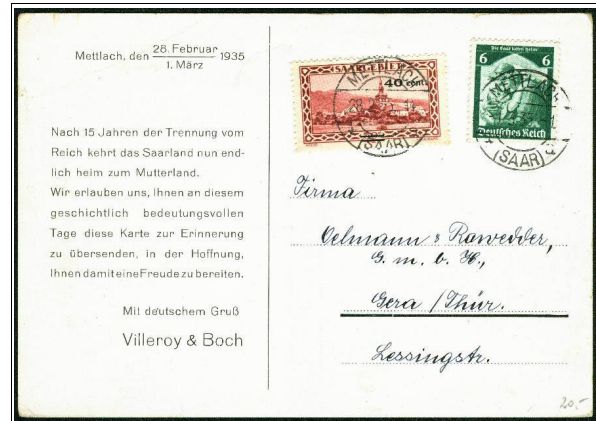 Mettlach, den 28. Februar 1935
1. März
Nach 15 Jahren der Trennung vom
Reich kehrt das Saarland nun end-
lich heim zum Mutterland.
Wir erlauben uns, Ihnen an diesem
geschichtlich bedeutungsvollen
Tage diese Karte zur Erinnerung
zu übersenden, in der Hoffnung,
Ihnen damit eine Freude zu bereiten.
Mit deutschem Gruß
Villeroy & Boch
SAARGEBIET
40 cent.
METTLACH
(SAAR)
Die Saar kehrt heim
6 6
Deutsches Reich
METTLACH
(SAAR)
Firma
Oelmann & Rawedder,
G. m. b. H.,
Gera / Thür.
Lessingstr.
20.-